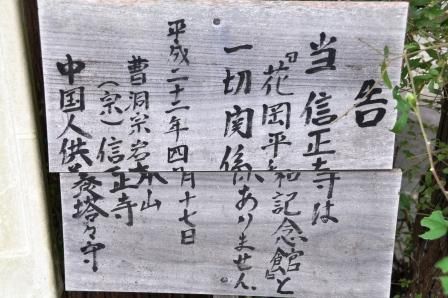 告
当 信正寺は
『花岡平和記念館』と
一切関係ありません。
平成二十二年四月十七日
曹洞宗岩本山
(宗)信正寺
中国人供養塔々守